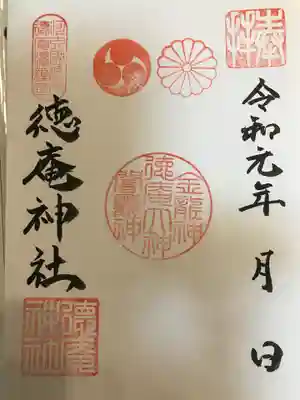 奉拝
令和元年 月 日
金龍神
徳庵大神
徳庵神社
徳庵神社